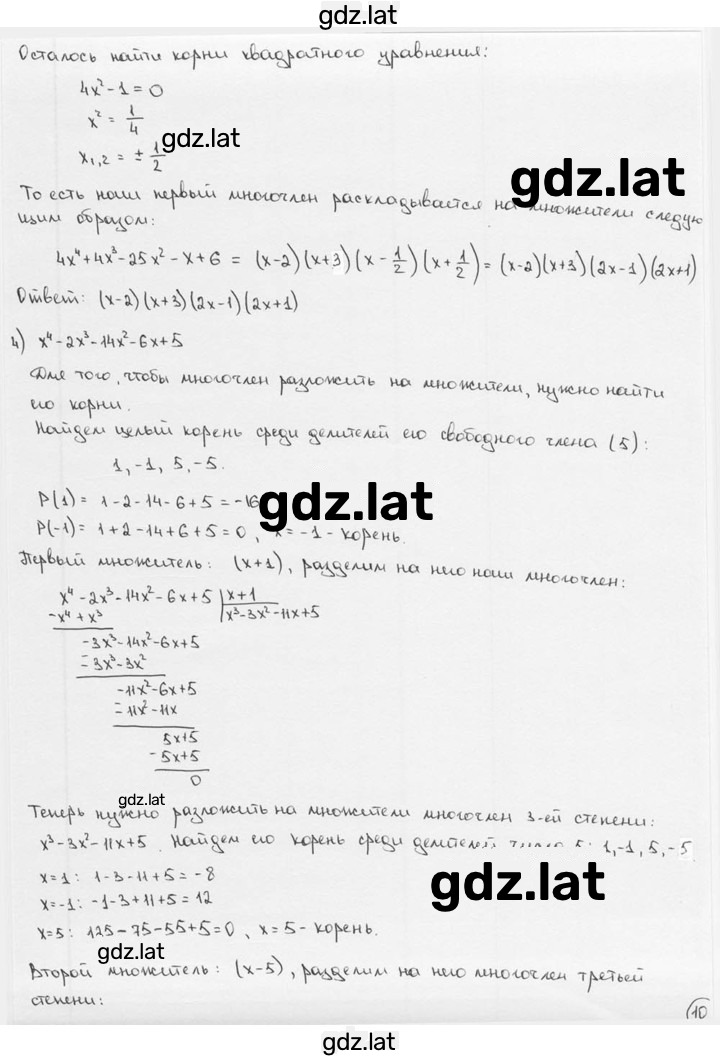 gdz.lat
Осталось найти корни квадратного уравнения:
4x² - 1 = 0
x² = 1/4
x₁,₂ = ± 1/2
gdz.lat
gdz.lat
То есть наш первый многочлен раскладывается на множители следую
щим образом:
4x⁴+4x³-25x²-x+6 = (x-2)(x+3)(x-1/2)(x+1/2) = (x-2)(x+3)(2x-1)(2x+1)
Ответ: (x-2)(x+3)(2x-1)(2x+1)
4) x⁴-2x³-14x²-6x+5
Для того, чтобы многочлен разложить на множители, нужно найти
его корни.
Найдем целый корень среди делителей его свободного члена (5):
1, -1, 5, -5.
gdz.lat
P(1) = 1-2-14-6+5 = -16
P(-1) = 1+2-14+6+5 = 0, x = -1 - корень.
Первый множитель: (x+1), разделим на него наш многочлен:
x⁴-2x³-14x²-6x+5 | x+1
-x⁴+x³ | x³-3x²-11x+5
-3x³-14x²-6x+5
-3x³-3x²
-11x²-6x+5
-11x²-11x
5x+5
-5x+5
0
gdz.lat
Теперь нужно разложить на множители многочлен 3-ей степени:
x³-3x²-11x+5. Найдем его корень среди делителей 5: 1, -1, 5, -5
x=1: 1-3-11+5=-8
x=-1: -1-3+11+5=12
gdz.lat
x=5: 125-75-55+5=0, x=5 - корень.
gdz.lat
Второй множитель: (x-5), разделим на него многочлен третьей
степени:
10
gdz.lat